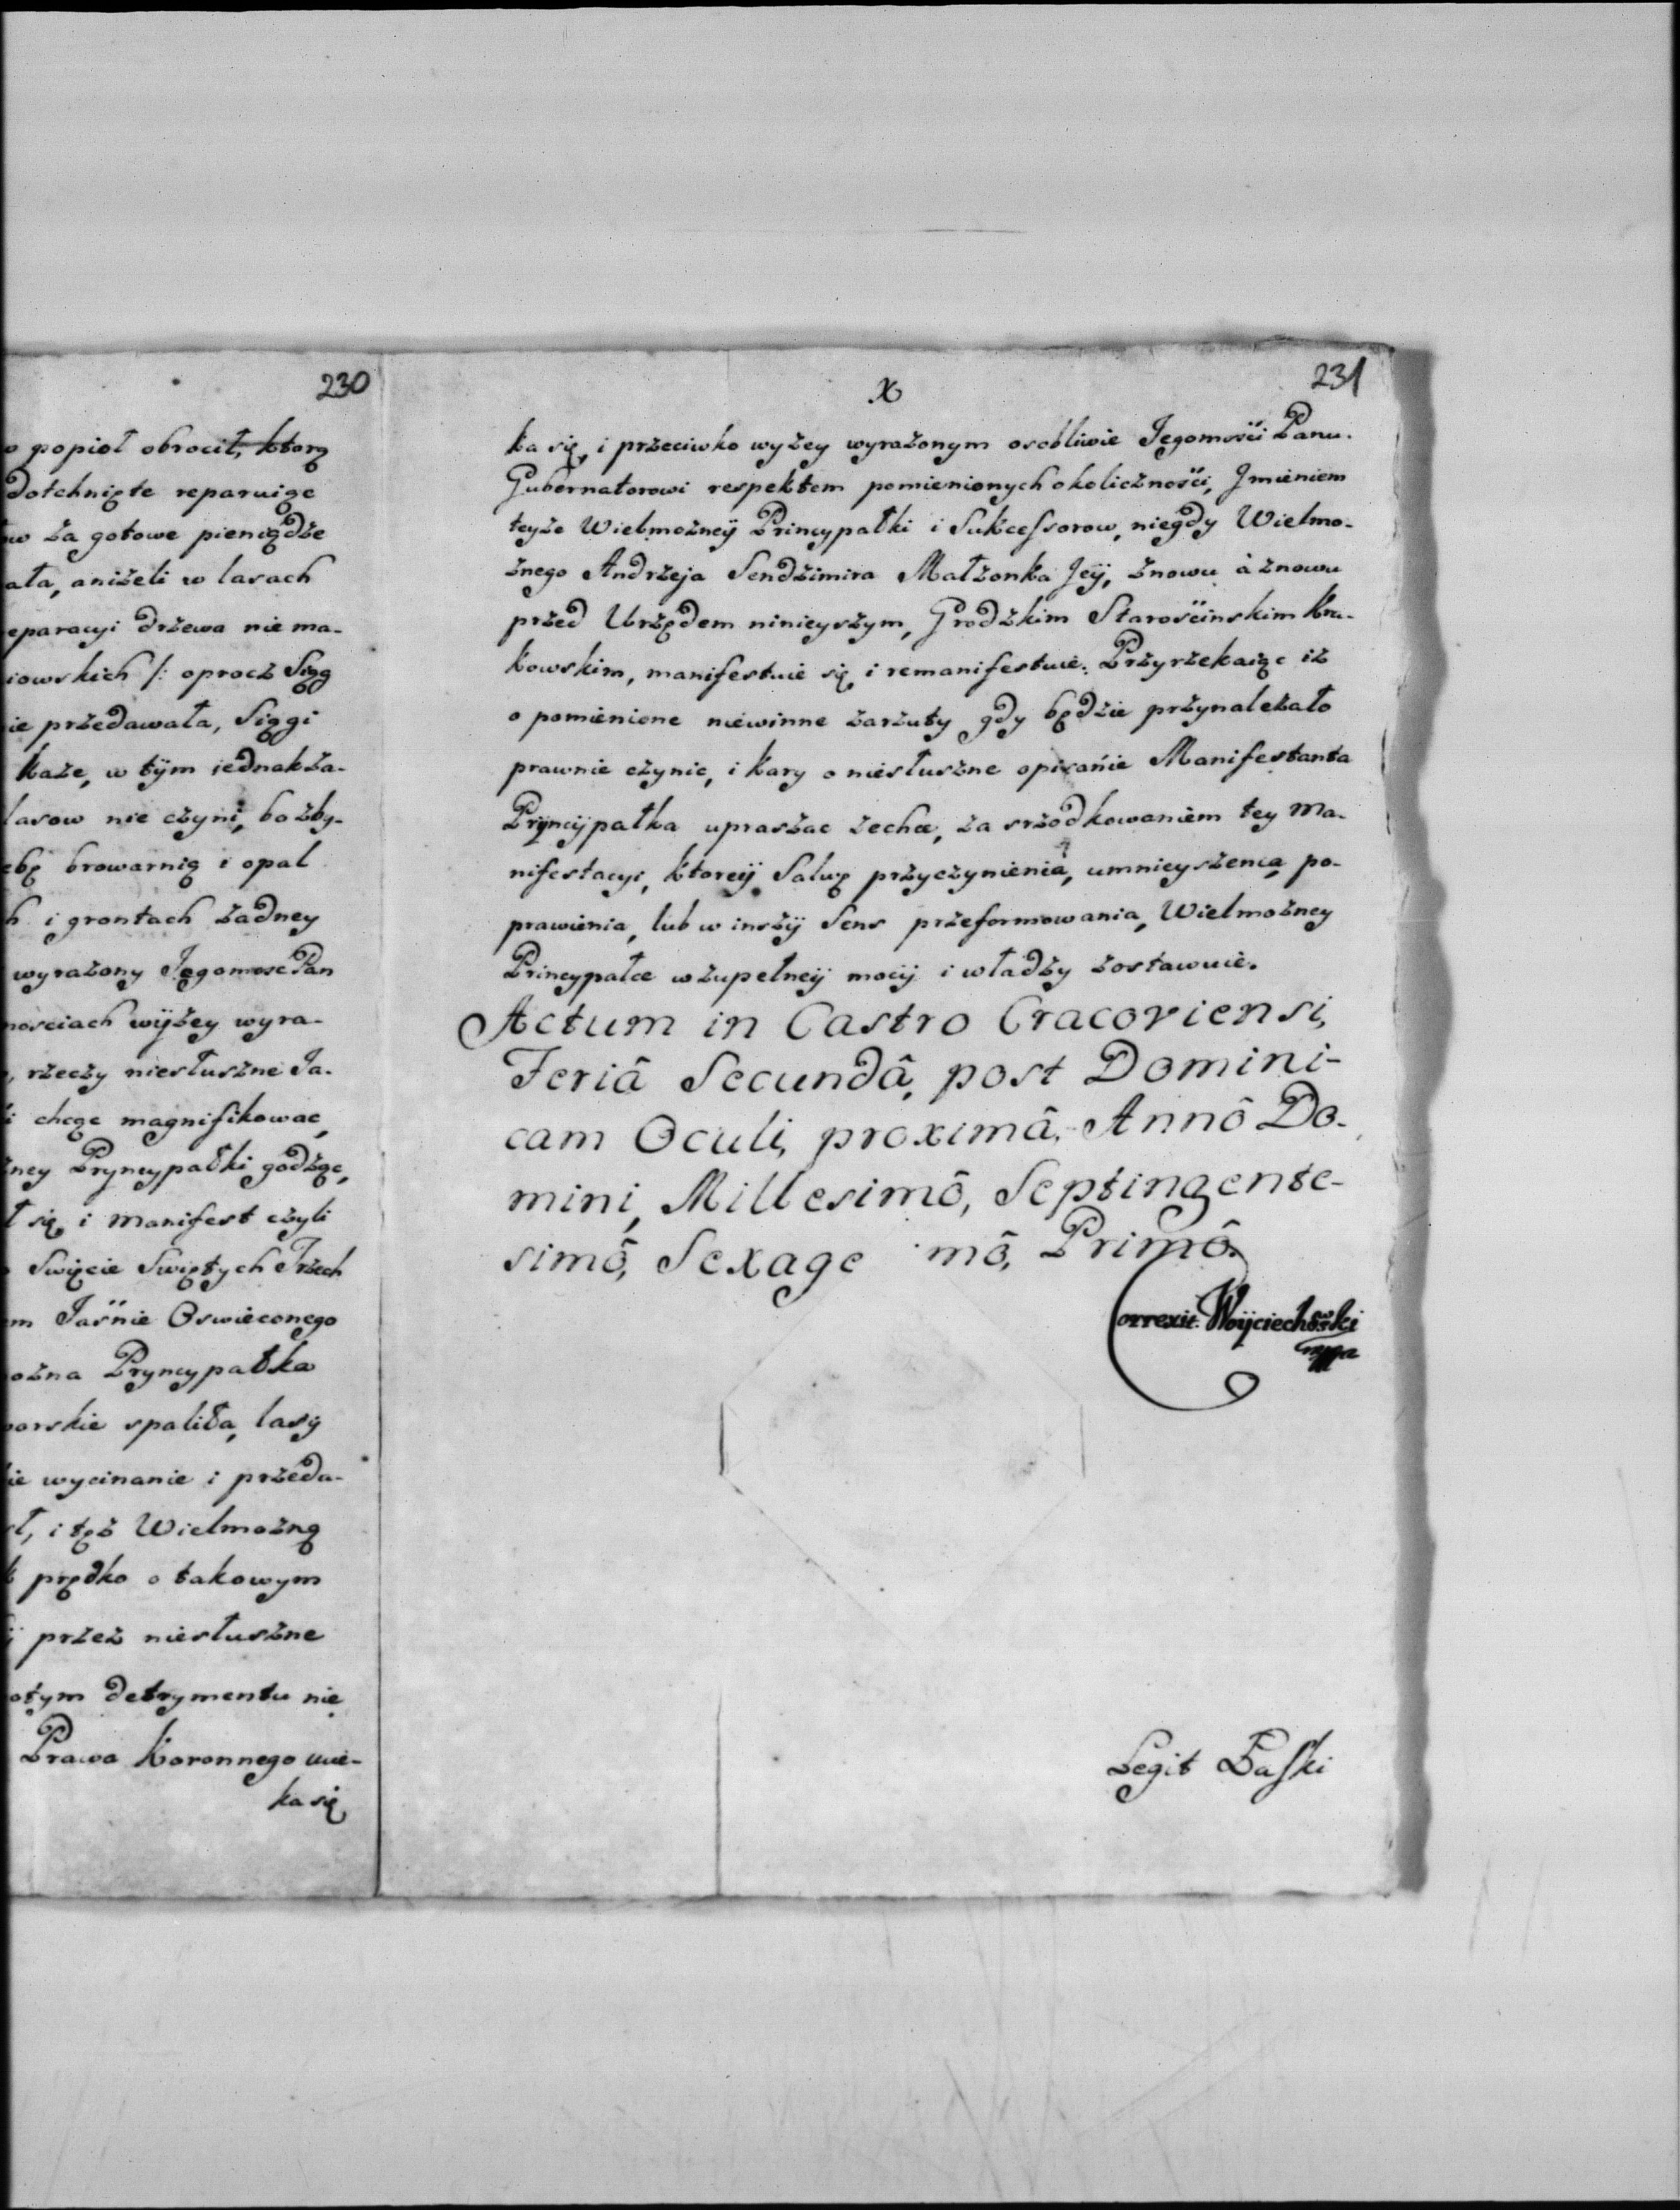 230
o popioł obrocił, ktorą
dotchnięte reparuiąc
ow za gotowe pieniądze
ała, aniżeli w lasach
eparacyi drzewa nie ma-
iowskich /: oprocz Siąg
ie przedawała, Siągi
każe, w tÿm iednakża-
lasow nie czyni, bo zby-
ebę browarnią i opal
h i grontach żadney
wyrażony Jegomosc Pan
nosciach wÿżey wyra-
, rzeczy niesłuszne Ja-
i chcąc magnifikowac,
żney Pryncypałki godząc,
ł się i Manifest czyli
Swięcie Swiętych Trzech
em Jaśnie Oswieconego
ożna Pryncypałka
arskie spaliła, lasÿ
ie wycinanie i przeda-
ł, i tęż Wielmożną
k prędko o takowym
ÿ przez niesłuszne
otym detrymentu nie
Prawa Koronnego ucie-
ka się
231
x
ka się, i przeciwko wyżey wyrażonym osobliwie Jegomości Panu
Gubernatorowi respektem pomienionych okoliczności, Jmieniem
teyże Wielmożneÿ Princypałki i Sukcessorow, niegdy Wielmo-
żnego Andrzeja Sendzimira Małżonka Jeÿ, znowu à znowu
przed Urzędem ninieyszym, Grodzkim Starościnskim Kra-
kowskim, manifestuie się i remanifestuie. Przyrzekaiąc iż
o pomienione niewinne zarzuty gdy będzie przynależało
prawnie czynic, i kary o niesłuszne opisanie Manifestanta
Prÿncÿpałka upraszac zechce, za srzodkowaniem tey Ma-
nifestacyi, ktoreÿ Salwę przyczynienia, umnieyszenia po-
prawienia, lub w inszÿ Sens przeformowania, Wielmożney
Princypałce w zupełneÿ mocÿ i władzy zostawuie.
Actum in Castro Cracoviensi,
Feriâ Secundâ, post Domini-
cam Oculi, proximâ, Annô Do-
mini, Millesimô, Septingente-
simô, Sexage mô, Primô.
Correxit Woÿciechowski
mppa
Legit Łaski